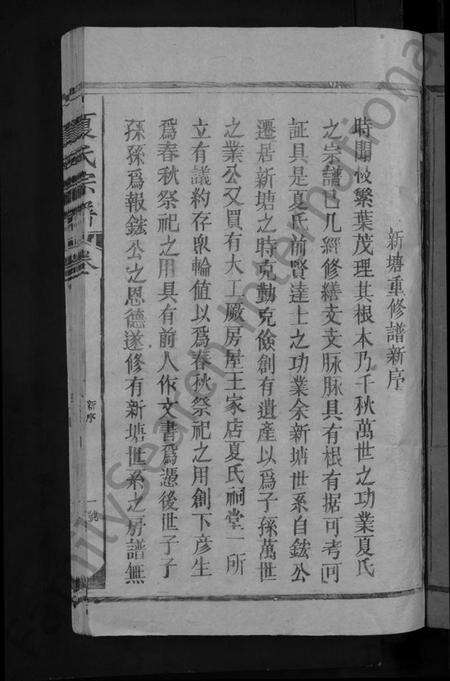 新塘重修譜新序
時聞枝繁葉茂理其根本乃千秋萬世之功業夏氏
之宗譜已凡經修繕支支脉脉具有根有据可考可
証具是夏氏前賢達士之功業余新塘世系自鉉公
遷居新塘之時克勤克儉創有遺產以爲子孫萬世
之業公又買有大工廠房屋王家店夏氏祠堂一所
立有議約存眾輪值以爲春秋祭祀之用創下彦生
爲春秋祭祀之用具有前人作文書爲憑後世子子
孫孫爲報鉉公之恩德遂修有新塘世系之房譜無
夏氏宗譜 卷
新序
一號
ilysearch International